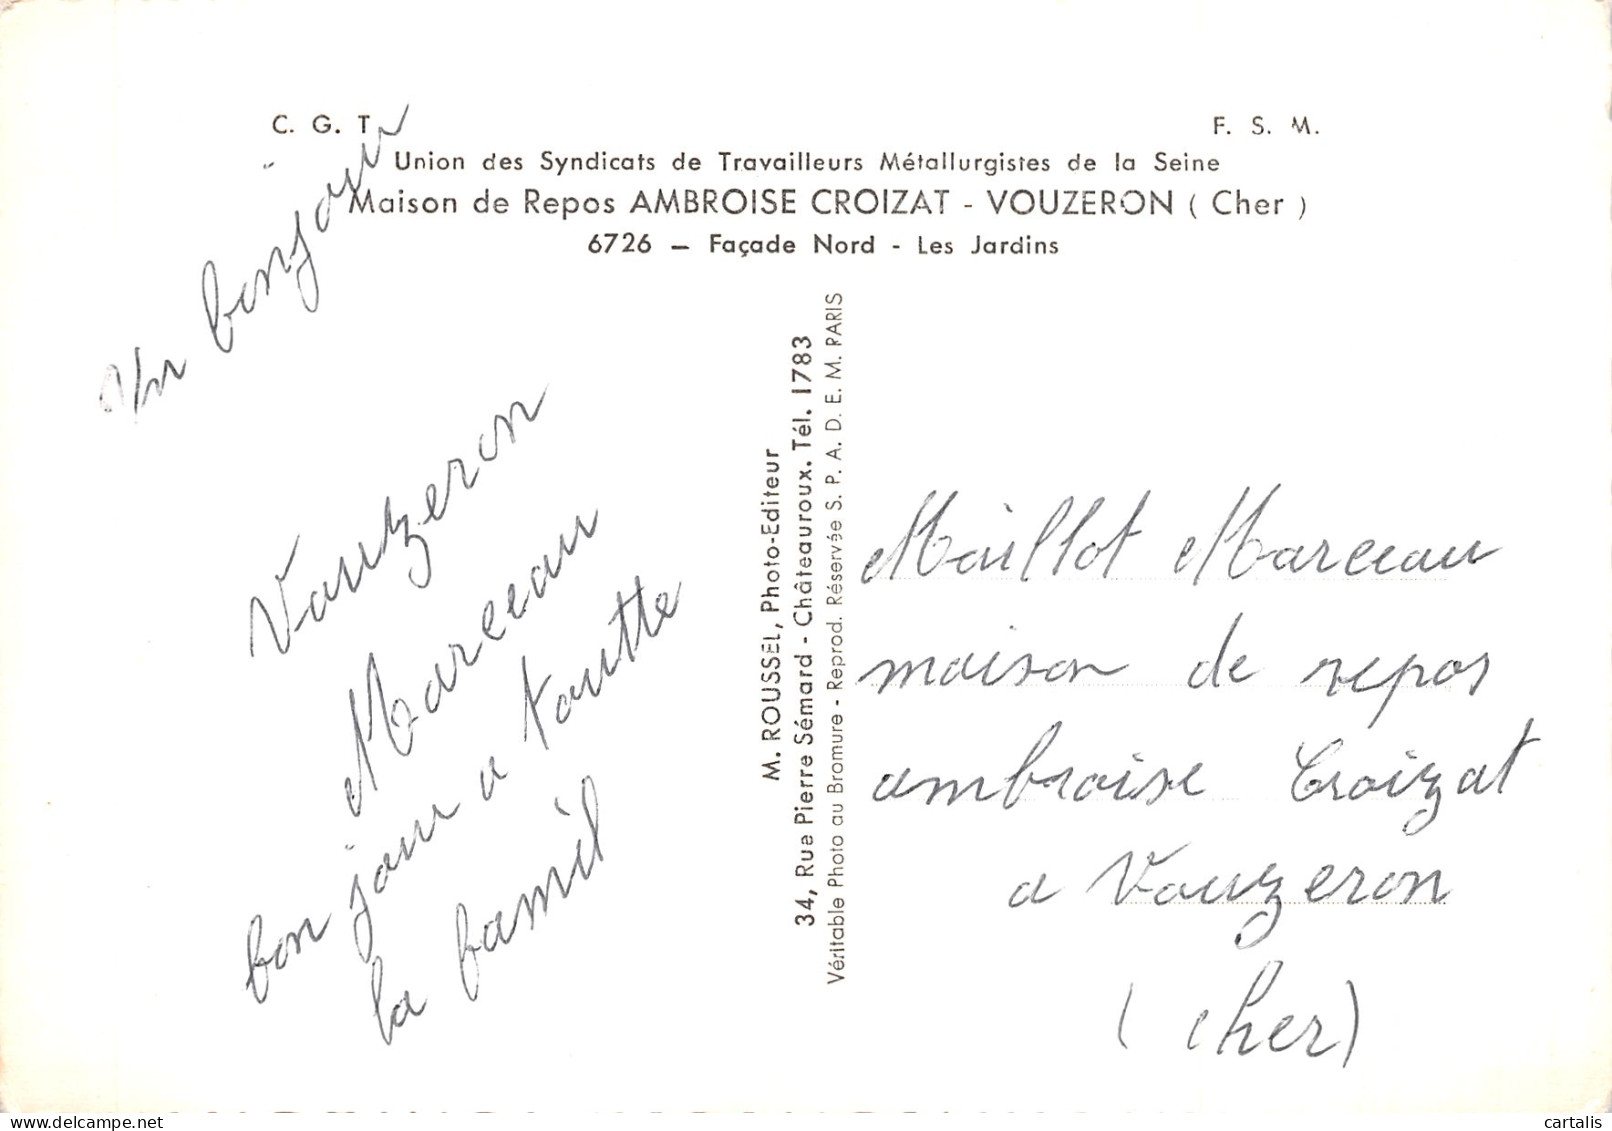 C. G. T.
F. S. M.
Union des Syndicats de Travailleurs Métallurgistes de la Seine
Maison de Repos AMBROISE CROIZAT - VOUZERON ( Cher )
6726 - Façade Nord - Les Jardins
Un bonjour
Vouzeron
Marceau
bon jour a toutte
la famil
M. ROUSSEL, Photo-Editeur
34, Rue Pierre Sémard - Châteauroux. Tél. 1783
Véritable Photo au Bromure - Reprod. Réservée S. P. A. D. E. M. PARIS
Maillot Marceau
maison de repos
ambroise Croizat
a Vouzeron
(cher)
www.delcampe.net
cartalis